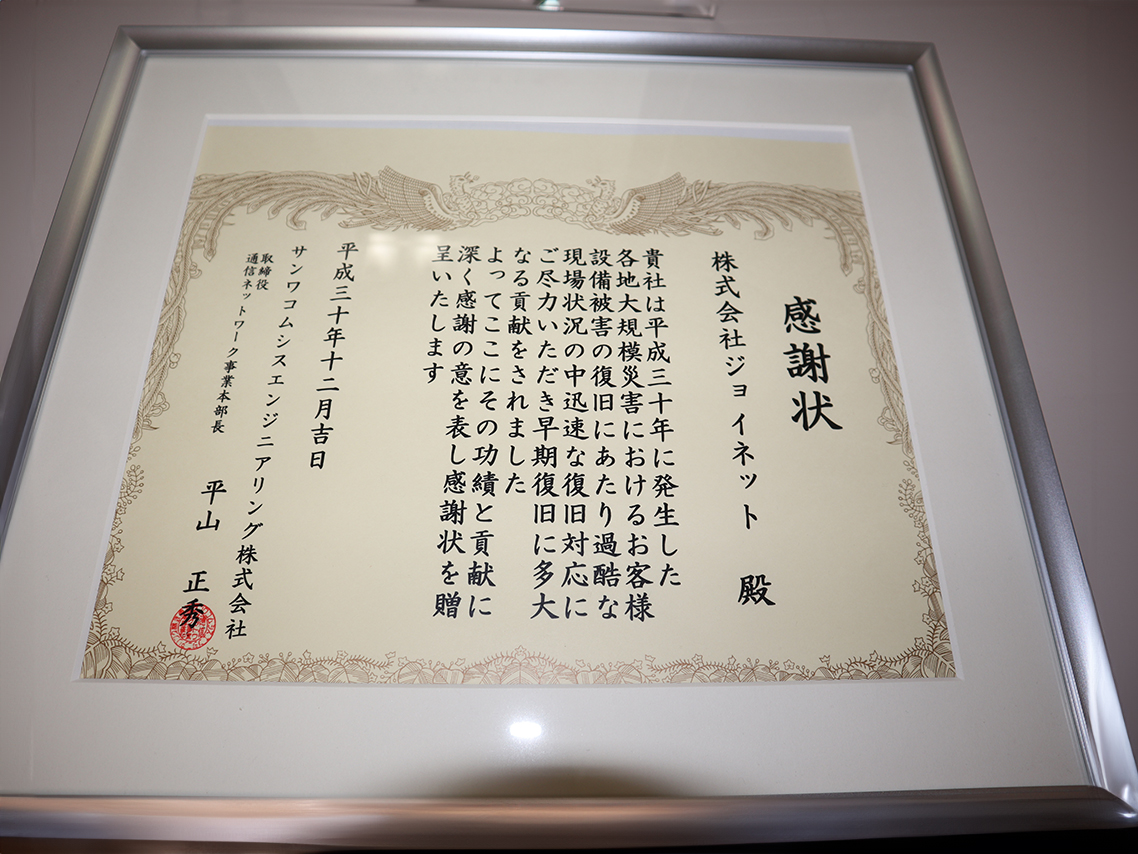 感謝状
株式会社ジョイネット 殿
貴社は平成三十年に発生した
各地大規模災害におけるお客様
設備被害の復旧にあたり過酷な
現場状況の中迅速な復旧対応に
ご尽力いただき早期復旧に多大
なる貢献をされました
よってここにその功績と貢献に
深く感謝の意を表し感謝状を贈
呈いたします
平成三十年十二月吉日
サンワコムシスエンジニアリング株式会社
取締役
通信ネットワーク事業本部長
平山 正秀